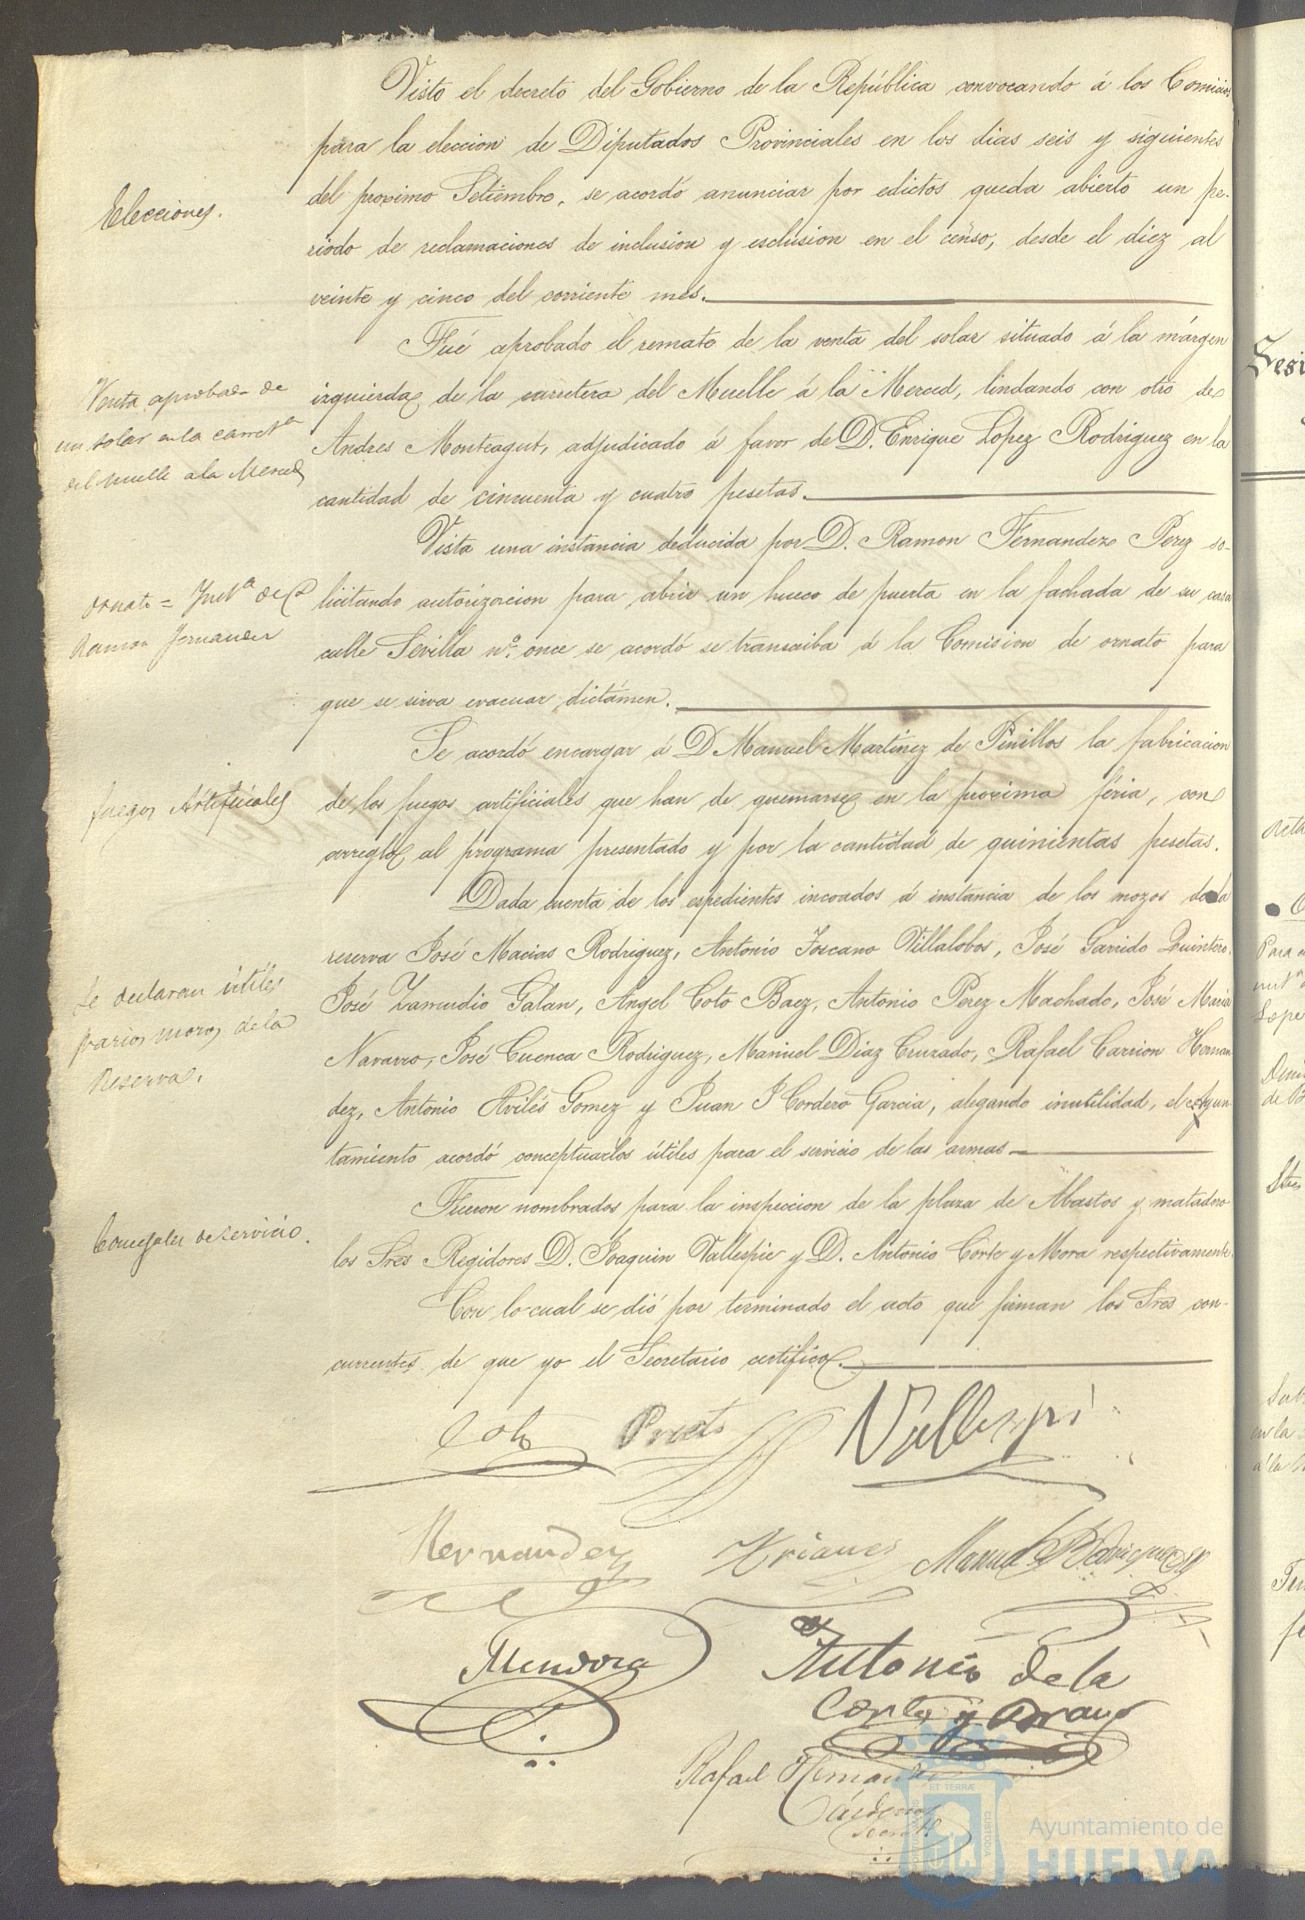 Visto el decreto del Gobierno de la República convocando á los Comicios
para la eleccion de Diputados Provinciales en los dias seis y siguientes
Elecciones.
del proximo Setiembre, se acordó anunciar por edictos queda abierto un pe-
riodo de reclamaciones de inclusion y esclusion en el censo, desde el diez al
veinte y cinco del corriente mes.
Fué aprobado el remate de la venta del solar situado á la márgen
Venta aprobada de
un solar en la carreta
del muelle a la Merced
izquierda de la carretera del Muelle á la Merced, lindando con otro de
Andres Monteagut, adjudicado á favor de D. Enrique Lopez Rodriguez en la
cantidad de cincuenta y cuatro pesetas.
Vista una instancia deducida por D. Ramon Fernandez Perez so-
Ornato = Insta de D
Ramon Fernandez
licitando autorizacion para abrir un hueco de puerta en la fachada de su casa
calle Sevilla nº. once se acordó se transcriba á la Comision de ornato para
que se sirva evacuar dictámen.
Se acordó encargar á D Manuel Martinez de Pinillos la fabricacion
fuegos Artificiales
de los fuegos artificiales que han de quemarse en la proxima féria, con
arreglo al programa presentado y por la cantidad de quinientas pesetas.
Dada cuenta de los espedientes incoados á instancia de los mozos de la
Se declaran útiles
varios mozos de la
Reserva.
reserva José Macias Rodriguez, Antonio Toscano Villalobos, José Garrido Quintero,
José Zamudio Galan, Angel Coto Baez, Antonio Perez Machado, José Maria
Navarro, José Cuenca Rodriguez, Manuel Diaz Cruzado, Rafael Carrion Hernan
dez, Antonio Avilés Gomez y Juan J Cordero Garcia, alegando inutilidad, el Ayun-
tamiento acordó conceptuarlos útiles para el servicio de las armas
Fueron nombrados para la inspeccion de la plaza de Abastos y matadero
Concejales de servicio.
los Sres Regidores D. Joaquin Vallespir y D. Antonio Corte y Mora respectivamente.
Con lo cual se dió por terminado el acto que firman los Sres con-
currentes de que yo el Secretario certifico.
Coto Prieto Vallespi
Hernandez Arianes Manuel Rodriguez
Mendoza
Antonio de la
Corte y
Rafael Hernandez
Cárdenas
Secret
Ayuntamiento de
HUELVA